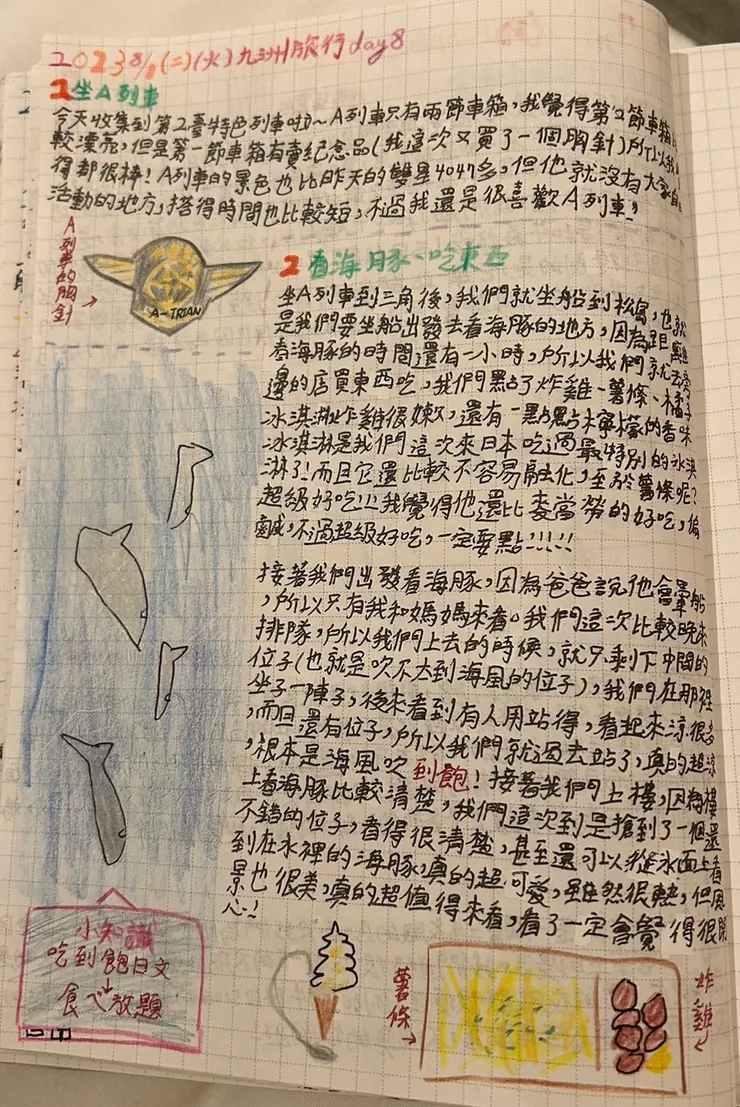 2023 8/8(二)(火)九洲旅行day8
1坐A列車
今天收集到第2臺特色列車啦~A列車只有兩節車箱,我覺得第2節車箱
較漂亮,但是第一節車箱有賣紀念品(我這次又買了一個胸針)所以我
得都很棒!A列車的景色也比昨天的雙星4047多,但他就沒有大家
活動的地方,搭得時間也比較短,不過我還是很喜歡A列車!!
A列車的胸針
A-TRIAN
2看海豚、吃東西
坐A列車到三角後,我們就坐船到松島,也就
是我們要坐船出發去看海豚的地方,因為距離
看海豚的時間還有一小時,所以我們就去旁
邊的店買東西吃,我們點了炸雞、薯條、橘子
冰淇淋,炸雞很嫩,還有一點點檸檬的香味
冰淇淋是我們這次來日本吃過最特別的冰淇
淋了!而且它還比較不容易融化,至於薯條呢?
超級好吃!!我覺得他還比麥當勞的好吃,偏
鹹,不過超級好吃,一定要點!!!!!
接著我們出發看海豚,因為爸爸說他會暈船
,所以只有我和媽媽來看。我們這次比較晚來
排隊,所以我們上去的時候,就只剩下中間的
位子(也就是吹不太到海風的位子),我們在那裡
坐子一陣子,後來看到有人用站得,看起來涼很多
,而且還有位子,所以我們就過去站了,真的超涼
,根本是海風吹到飽!接著我們上樓,因為樓
上看海豚比較清楚,我們這次到是搶到了一個還
不錯的位子,看得很清楚,甚至還可以從水面上看
到在水裡的海豚,真的超可愛,雖然很熱,但風
景也很美,真的超值得來看,看了一定會覺得很開
心!!
小知識
吃到飽日文
↓
食べ放題
薯條
炸雞